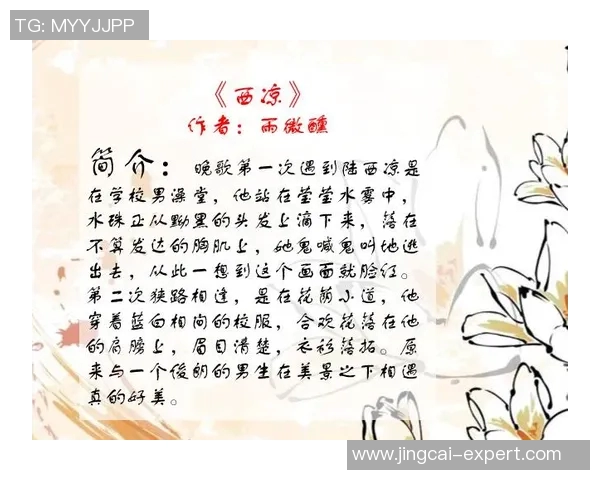 TG: MYYJJPP
《西凉》
作者：雨微醺
简介：晚歌第一次遇到陆西凉是
在学校男澡堂，他站在莹莹水雾中，
水珠正从黝黑的头发上滴下来，落在
不算发达的胸肌上，她鬼喊鬼叫地逃
出去，从此一想到这个画面就脸红。
第二次狭路相逢，是在花荫小道，他
穿着蓝白相间的校服，合欢花落在他
的肩膀上，眉目清楚，衣衫落拓。原
来与一个俊朗的男生在美景之下相遇
真的好美。
www.jingcai-expert.com